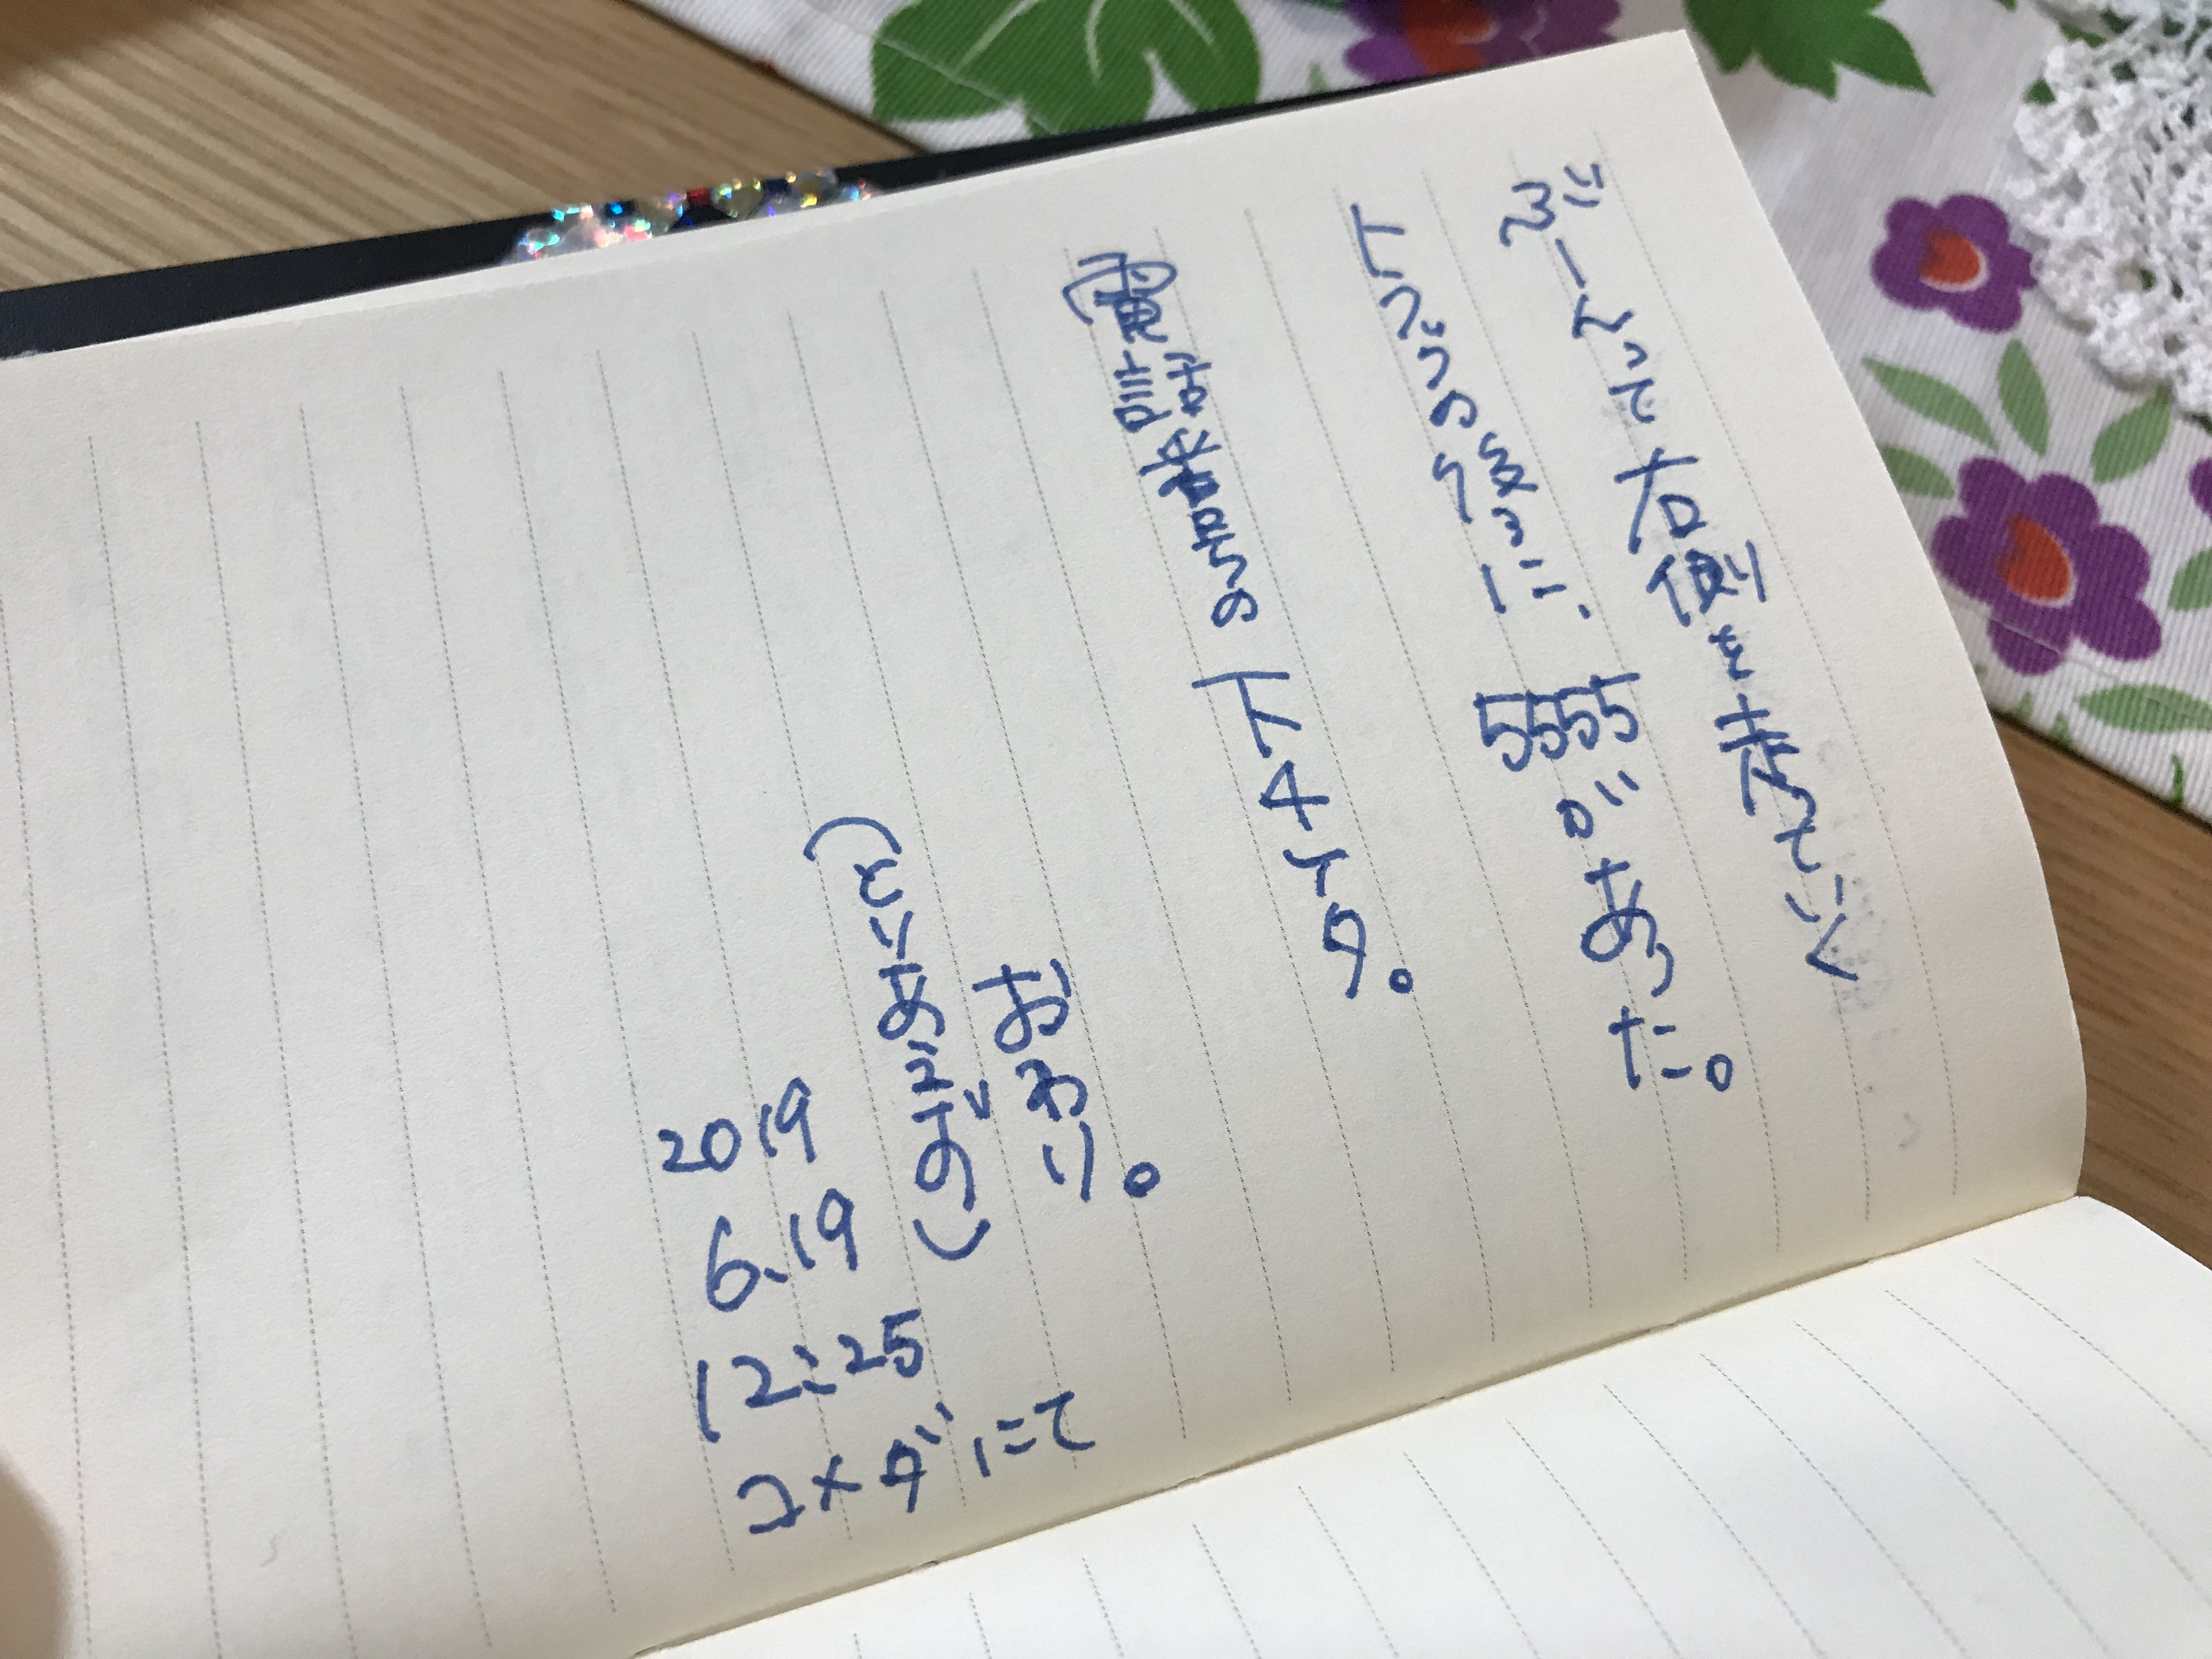 ぶーんって右側を走っていく
の後ろに、5555があった。
電話番号の下4ケタ。
おわり。
(とりあえずの)
2019
6.19
12:25
コメダにて